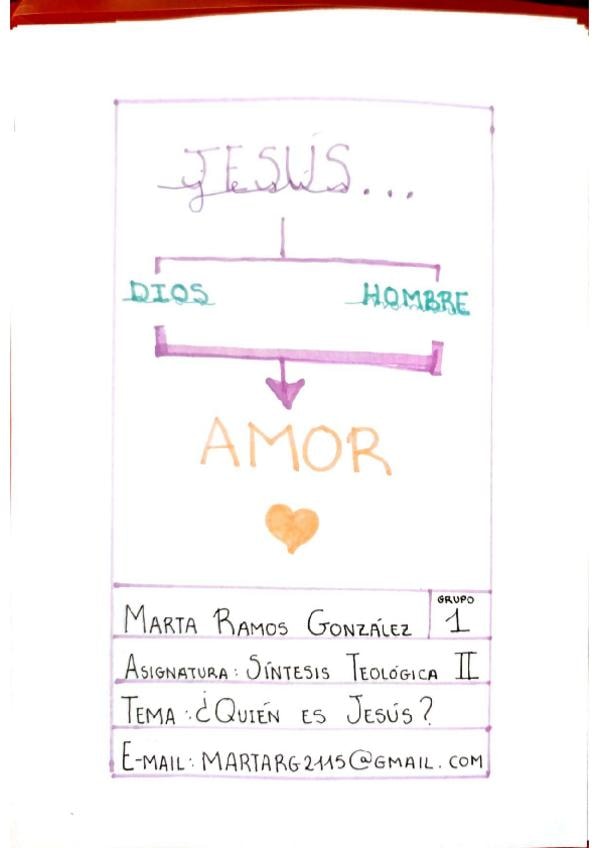 JESÚS...
DIOS HOMBRE
AMOR
MARTA RAMOS GONZÁLEZ GRUPO 1
ASIGNATURA: SÍNTESIS TEOLÓGICA II
TEMA: ¿QUIÉN ES JESÚS?
E-MAIL: MARTARG2115@GMAIL.COM